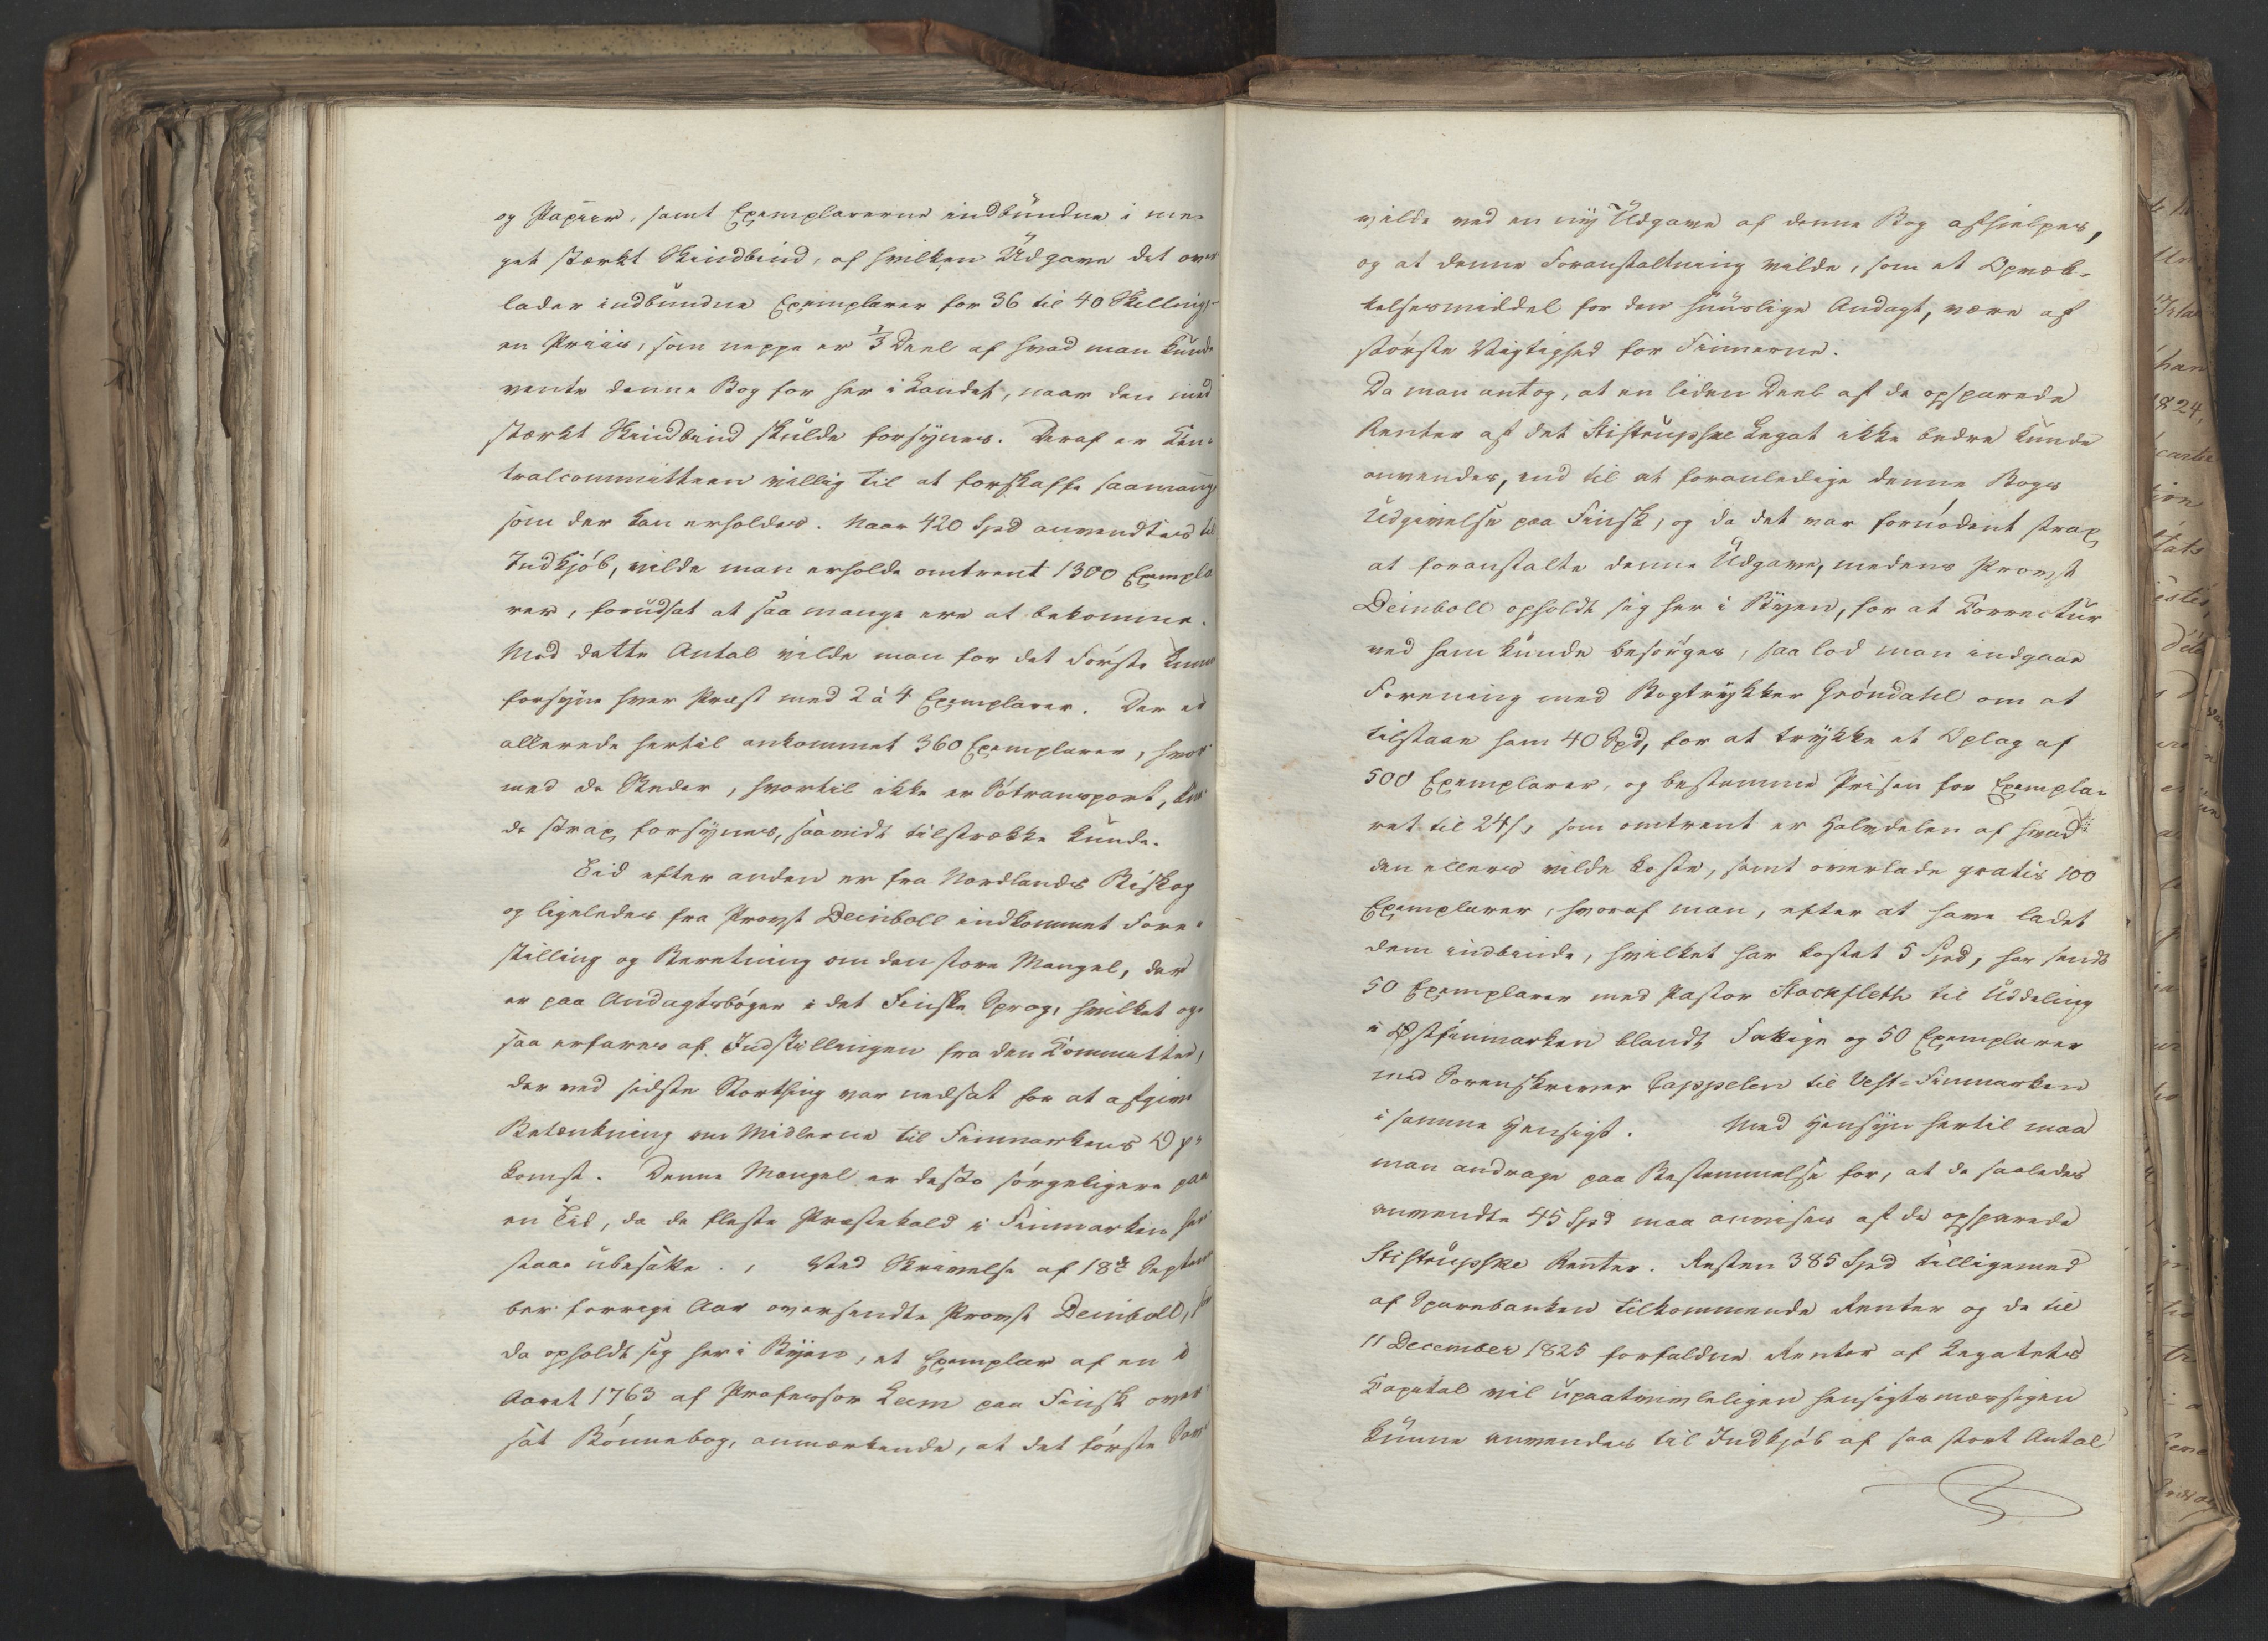 og Papiir, samt Exemplarerne indbundne i me-
get stærkt Skindbind, af hvilken Udgave det over-
lader indbundne Exemplarer for 36 til 40 Skilling,
en Priis, som neppe er 1/3 Deel af hvad man kunde
vente denne Bog for her i Landet, naar den med
stærkt Skindbind skulde forsynes. Deraf er Cen-
tralcommitteen villig til at forskaffe saamange
som der kan erholdes. Naar 420 Spd anvendtes til
Indkjöb, vilde man erholde omtrent 1300 Exempla
rer, forudsat at saa mange ere at bekomme.
Med dette Antal vilde man for det Förste kunne
forsyne hver Præst med 2 à 4 Exemplarer. Der er
allerede hertil ankommet 360 Exemplarer, hvor-
med de Steder, hvortil ikke er Sötransport, kun-
de strax forsynes, saavidt tilstrække kunde.
Tid efter anden er fra Nordlands Biskop
og ligeledes fra Provst Deinboll indkommet Fore-
stilling og Beretning om den store Mangel, der
er paa Andagtsböger i det Finske Sprog, hvilket og-
saa erfares af Indstillingen fra den Committee,
der ved sidste Storthing var nedsat for at afgive
Betænkning om Midlerne til Finmarkens Op-
komst. Denne Mangel er desto sörgeligere paa
en Tid, da de fleste Præstekald i Finmarken her
staae ubesatte. , Ved Skrivelse af 18de Septem
ber forrige Aar oversendte Provst Deinboll, som
da opholdt sig her i Byen, et Exemplar af en i
Aaret 1763 af Professor Leem paa Finsk over-
sat Bönnebog, anmærkende, at det förste Savn
vilde ved en ny Udgave af denne Bog afhielpes,
og at denne Foranstaltning vilde, som et Opvæk-
kelsesmiddel for den huuslige Andagt, være af
störste Vigtighed for Finnerne.
Da man antog, at en liden Deel af de opsparede
Renter af det Stistrupske Legat ikke bedre kunde
anvendes, end til at foranledige denne Bogs
Udgivelse paa Finsk, og da det var fornödent strax
at foranstalte denne Udgave, medens Provst
Deinboll opholdt sig her i Byen, for at Correctur
ved ham kunde besörges, saa lod man indgaae
Forening med Bogtrykker Gröndahl om at
tilstaae ham 40 Spd, for at trykke et Oplag af
500 Exemplarer, og bestemme Prisen for Exempla-
ret til 24 s, som omtrent er Halvdelen af hvad
den ellers vilde koste, samt overlade gratis 100
Exemplarer, hvoraf man, efter at have ladet
dem indbinde, hvilket har kostet 5 Spd, har sendt
50 Exemplarer med Pastor Stockfleth til Uddeling
i Östfinmarken blandt Fattige og 50 Exemplarer
med Sorenskriver Cappelen til Vest-Finmarken
i samme Hensigt. Med Hensyn hertil maa
man andrage paa Bestemmelse for, at de saaledes
anvendte 45 Spd maa anvises af de opsparede
Stistrupske Renter. Resten 385 Spd tilligemed
af Sparebanken tilkommende Renter og de til
11 December 1825 forfaldne Renter af Legatets
Capital vil upaatvivleligen hensigtsmæssigen
kunne anvendes til Indkjöb af saa stort Antal